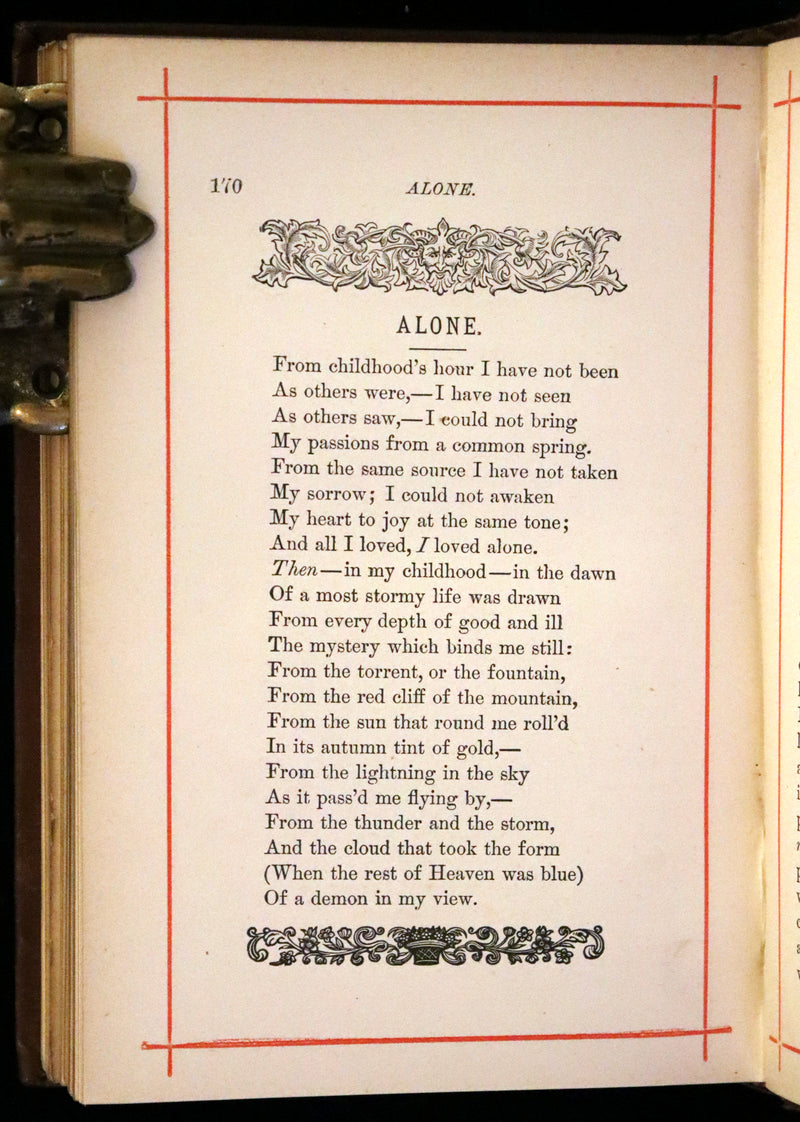 170
ALONE.
ALONE.
From childhood's hour I have not been
As others were,—I have not seen
As others saw,—I could not bring
My passions from a common spring.
From the same source I have not taken
My sorrow; I could not awaken
My heart to joy at the same tone;
And all I loved, I loved alone.
Then—in my childhood—in the dawn
Of a most stormy life was drawn
From every depth of good and ill
The mystery which binds me still:
From the torrent, or the fountain,
From the red cliff of the mountain,
From the sun that round me roll'd
In its autumn tint of gold,—
From the lightning in the sky
As it pass'd me flying by,—
From the thunder and the storm,
And the cloud that took the form
(When the rest of Heaven was blue)
Of a demon in my view.